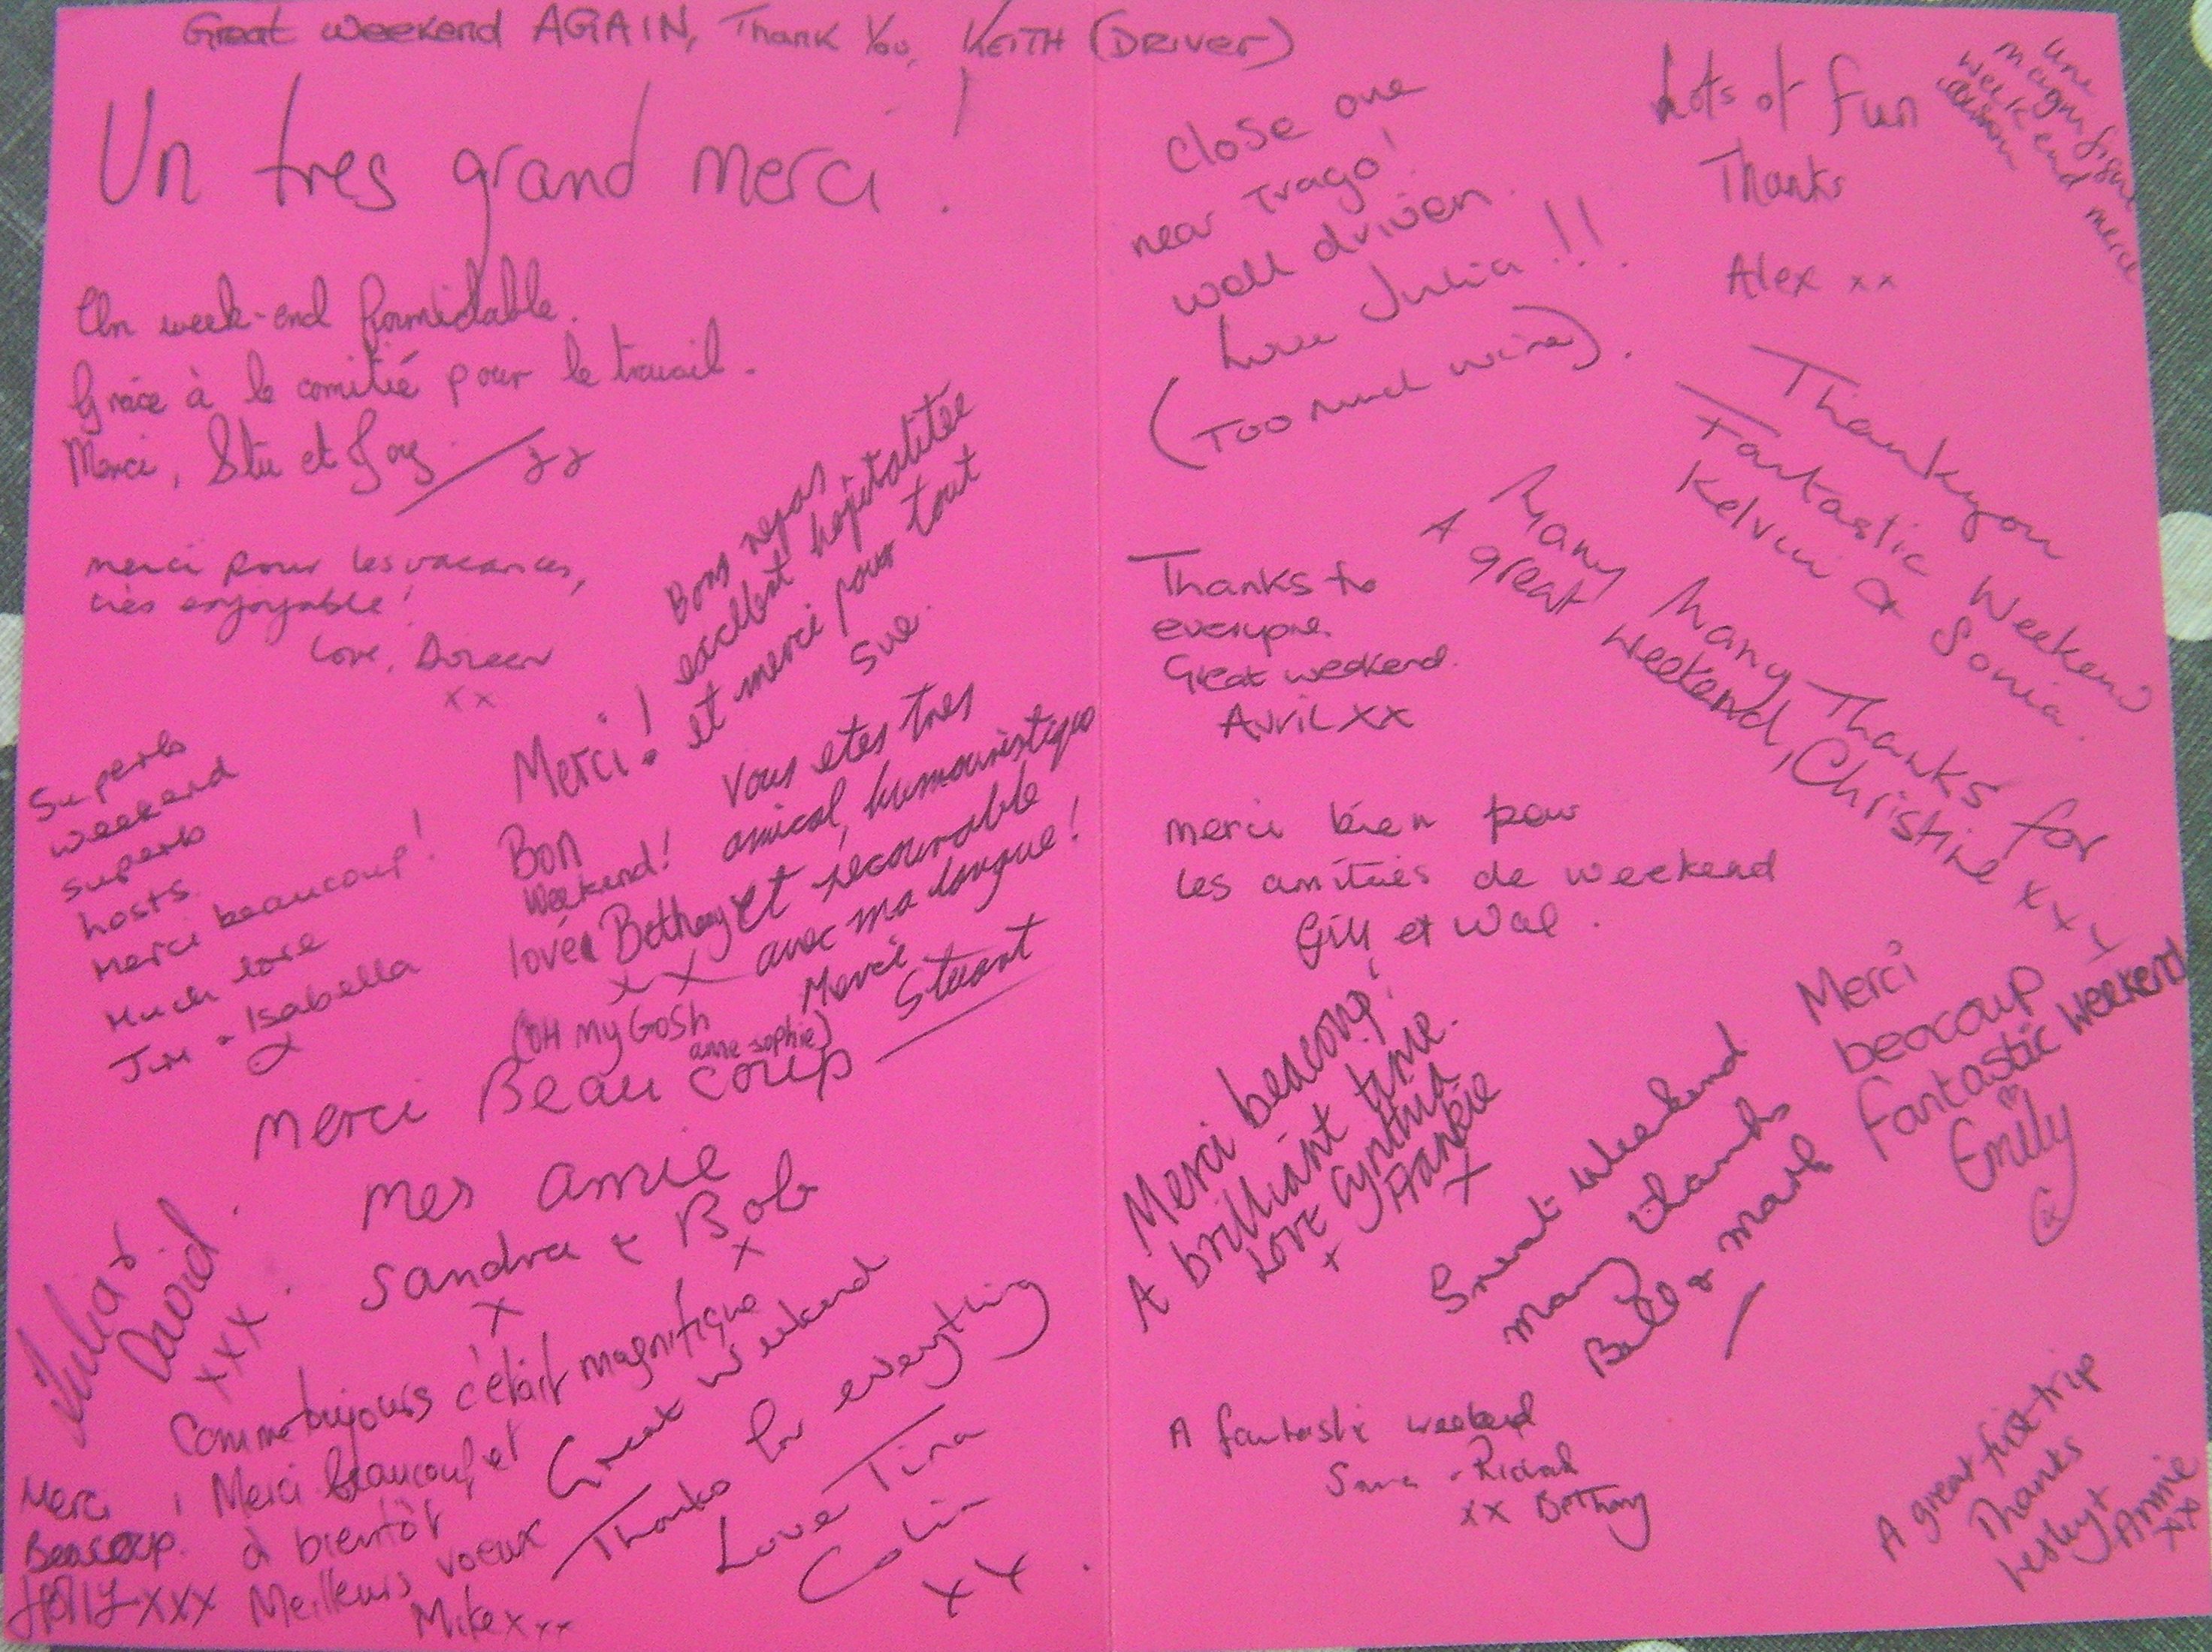 Great weekend AGAIN, Thank You, KEITH (DRIVER)
Un tres grand merci!
Un week-end formidable.
Grâce à le comitié pour le travail.
Merci, Stu et Joy
merci pour les vacances,
très enjoyable!
love, Doreen
xx
Bons repas
excellent hopitalitée
et merci pour tout
Sue.
Superb
weekend
superb
hosts.
Merci beaucoup!
Much love
Jim & Isabella
x
Merci!
Bon
Weekend!
love Bethany
x x
(OH MY GOSH
anne sophie)
Vous etes tres
amical, humouristique
et secourable
avec ma langue!
Merci
Stuart
merci Beaucoup
mes amie
Sandra & Bob
x x
Julia &
David
xxx
Comme toujours c'était magnifique
! Merci beaucoup et
à bientôt
Meilleurs voeux
Mike xxx
Merci
Beacoup.
HOLLY xxx
Great weekend
Thanks for everything
Love Tina
Colin
xx
Close one
near Trago!
well driven.
Love Julia!!!
(Too much wine).
Lots of fun
Thanks
Alex xx
une
magnifique
weekend merci
Thankyou
Fantastic Weekend
Kelvin & Sonia.
Many Many Thanks for
A great weekend, Christine xx
Thanks to
everyone.
Great weekend.
Avril xx
merci bien pour
les amitiés de weekend
Gill et Wal.
Merci beacoup!
A brilliant time.
Love Cynthia
+ Frankie
x
Merci
beacoup!
Fantastic Weekend
Emily
Great weekend
many thanks
Bill & mark
A fantastic weekend
xx Bethany
A great first trip
Thanks
Lesley +
Annie
xx